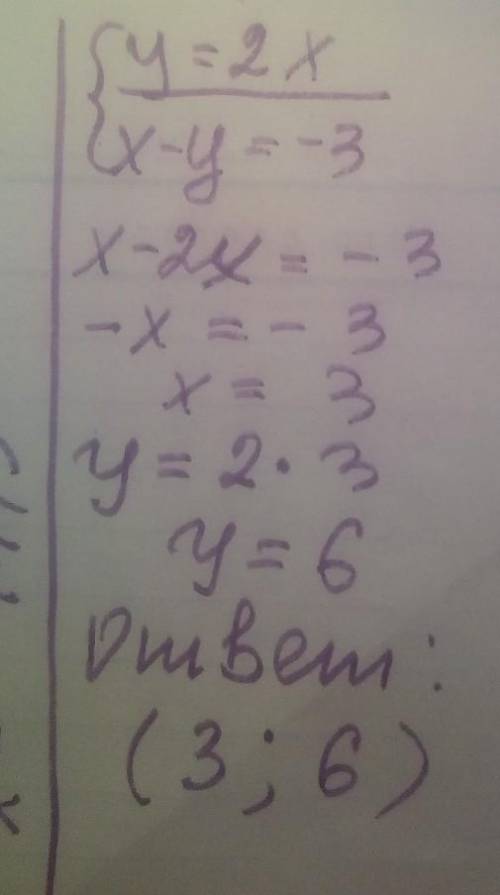 { y = 2x
x - y = -3
x - 2x = - 3
- x = - 3
x = 3
y = 2 · 3
y = 6
Ответ:
(3; 6)